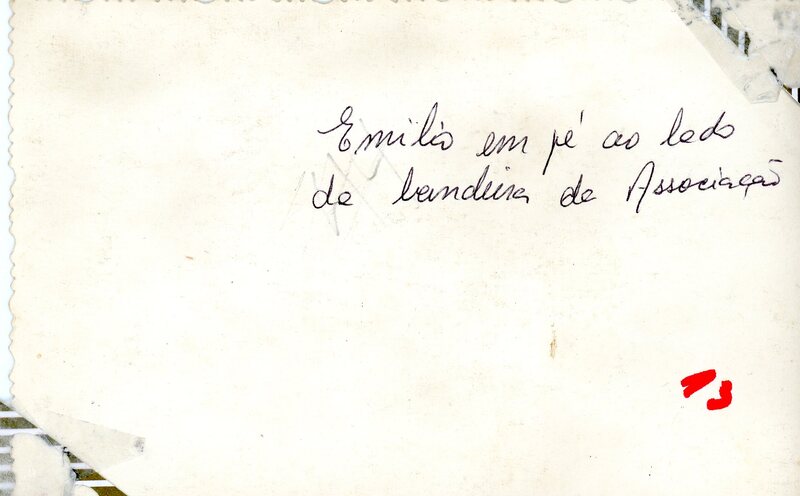 Emilio em pé ao lado
da bandeira da Associação
13